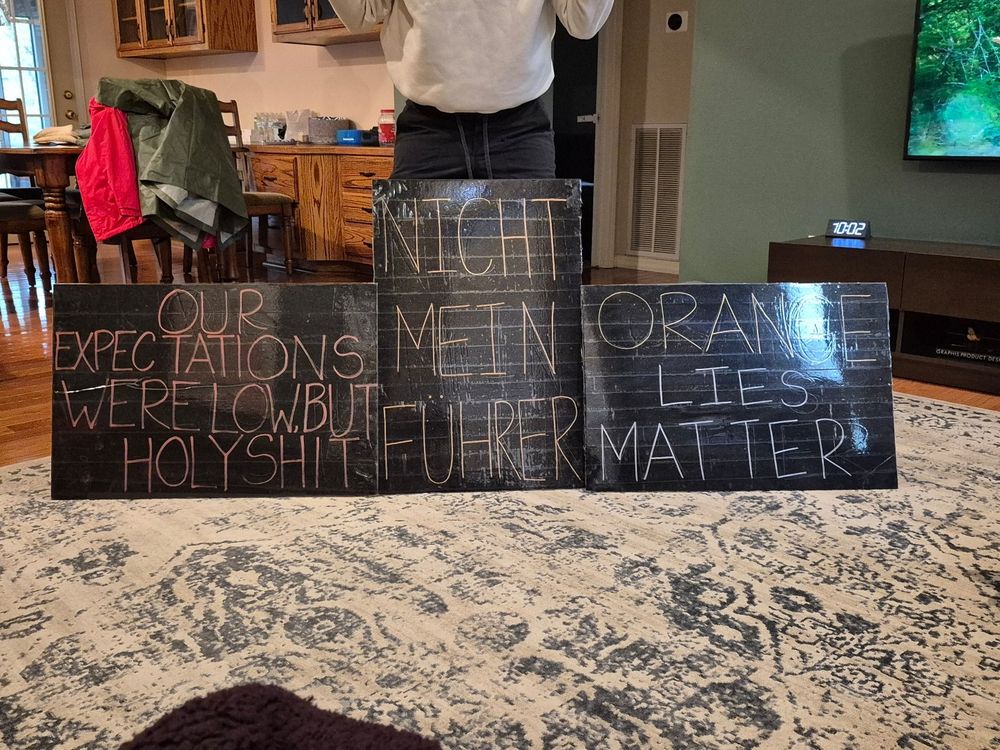 OUR
EXPECTATIONS
WERE LOW, BUT
HOLY SHIT
NICHT
MEIN
FÜHRER
ORANGE
LIES
MATTER
10:02
GRAPHIS PRODUCT DES